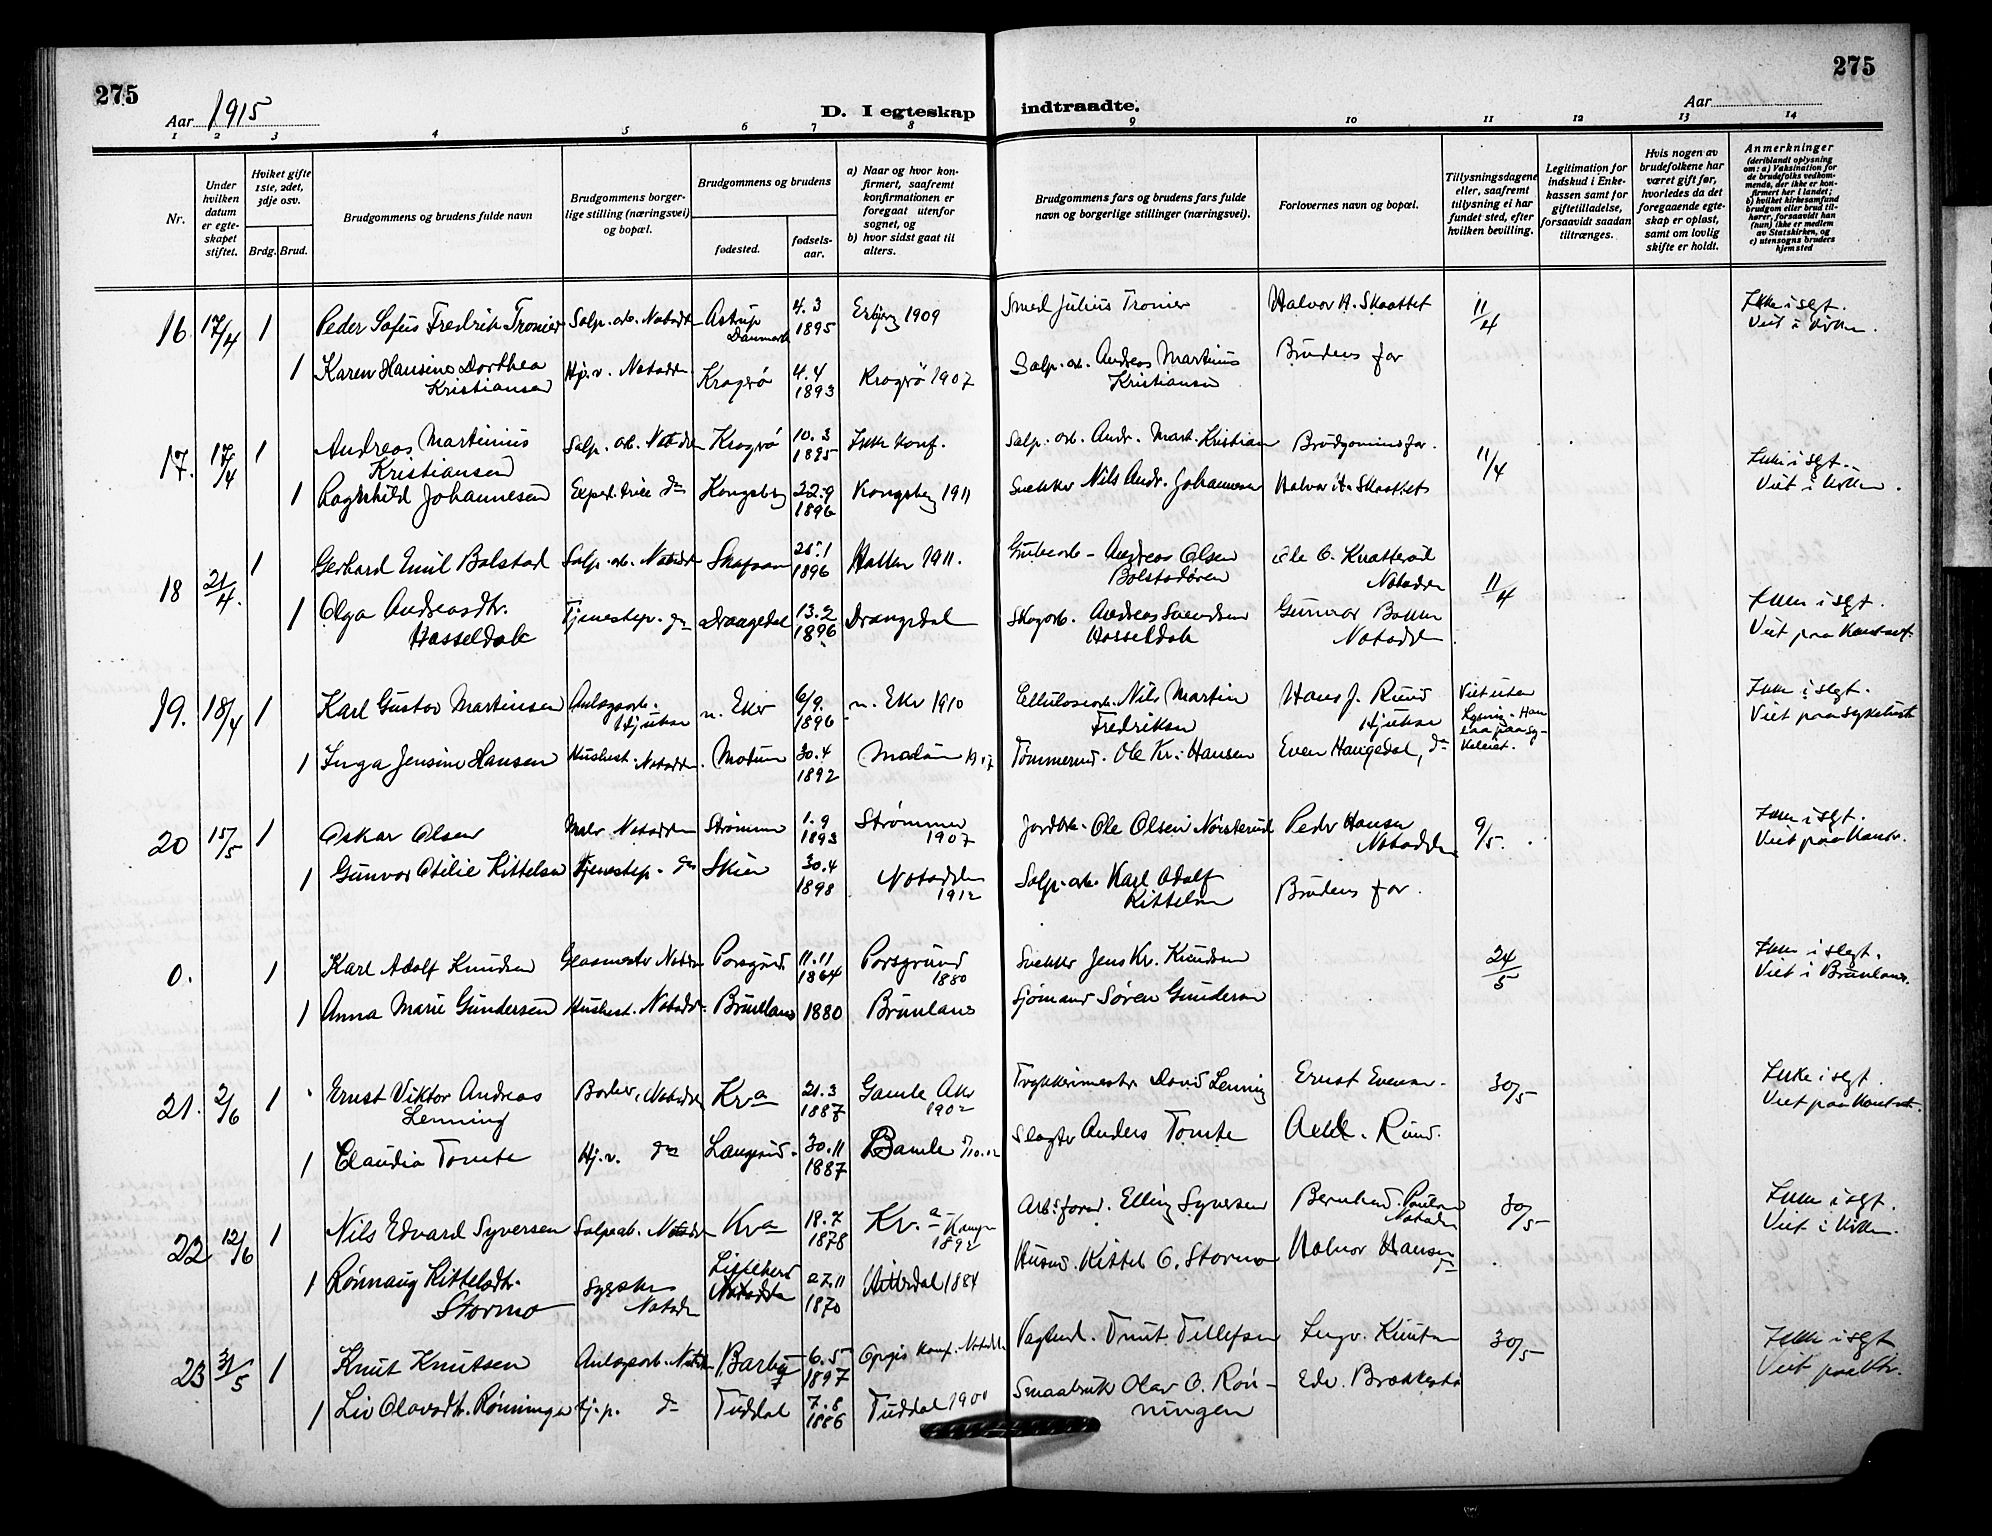 275
275
Aar 1915
D. I egteskap indtraadte.
Aar
1 2 3 4 5 6 7 8 9 10 11 12 13 14
Nr.
Under hvilken datum er egteskapet stiftet.
Hviket gifte 1ste, 2det, 3dje osv.
Brdg. Brud.
Brudgommens og brudens fulde navn
Brudgommens borgerlige stilling (næringsvei) og bopæl.
Brudgommens og brudens
fødested.
fødselsaar.
a) Naar og hvor konfirmert, saafremt konfirmationen er foregaat utenfor sognet, og
b) hvor sidst gaat til alters.
Brudgommens fars og brudens fars fulde navn og borgerlige stillinger (næringsvei).
Forlovernes navn og bopæl.
Tillysningsdagene eller, saafremt tilysning ei har fundet sted, efter hvilken bevilling.
Legitimation for indskud i Enkekassen samt for giftetilladelse, forsaavidt saadan tiltrænges.
Hvis nogen av brudefolkene har været gift før, hvorledes da det foregaaende egteskap er opløst, samt om lovlig skifte er holdt.
Anmerkninger
(deriblandt oplysning om: a) Vaksination for de brudefolks vedkommende, der ikke er konfirmert her i landet; b) hvilket kirkesamfund brudgom eller brud tilhører, forsaavidt han (hun) ikke er medlem av Statskirken, og c) utensogns bruders hjemsted
16 17/4 1 Peder Sofus Fredrik Tronier Salp. arb. Notodden Astrup Danmark 4.3 1895 Esbjerg 1909 Smed Julius Tronier Halvor H. Skaattet 11/4 Ikke i slgt. Viet i kirken.
1 Karen Hansine Dorthea Kristiansen Hj.v. Notodden Kragerø 4.4 1893 Kragerö 1907 Salp. arb. Andreas Martinius Kristiansen Brudens far
17. 17/4 1 Andreas Martinius Kristiansen Salp. arb. Notodden Kragerø 10.3 1895 Ikke konf. Salp. arb. Andr. Mart. Kristian Brudgommens far. 11/4 Ikke i slgt. Viet i kirken.
1 Ragnhild Johannesen Exped.trice do Kongsberg 22.9 1896 Kongsberg 1911 Snekker Nils Andr. Johannesen Halvor H. Skaattet
18 21/4. 1 Gerhard Emil Bolstad Salp. arb. Notodden 25.1 1896 1911. Grubearb. Andreas Olsen Bolstadøren Ole O. Notodden 11/4 Ikke i slgt. Viet paa Kontoret.
1 Olga Andreasdtr. Hasseldal Tjenestep. do Drangedal 13.2 1896 Drangedal Skogarb. Andreas Svendsen Hasseldal Gunnar Bakken Notodden
19. 18/4 1 Karl Gustav Martinsen Anlægsarb. Hjuksa n. Eker 6/9. 1896 n. Eker 1910 Cellulosearb. Nils Martin Fredriksen Hans J. Ruud Hjuksa Viet uten lysning. Han laa paa sykeleiet. Ikke i slgt. Viet paa sykehuset
1 Inga Jensine Hansen Hushest. Notodden. Modum 30.4 1892 Modum Tømmermd. Ole Kr. Hansen Even Haugedal, do
20 15/5 1 Oskar Olsen Maler Notodden Strømmen 1.9 1893 Strømmen 1907 Jordbr. Ole Olsen Norsterud Peder Hansen Notodden 9/5. Ikke i slgt. Viet paa Kontor.
1 Gunvor Otilie Kittelsen Tjenestep. do Skien 30.4 1898 Notodden 1912 Salp. arb. Karl Adolf Kittelsen Brudens far.
0. 1 Karl Adolf Knudsen Glasmester Notodden Porsgrund. 11.11 1864 Porsgrund 1880 Snekker Jens Kr. Knudsen 24/5 Ikke i slegt. Viet i Brunlanes.
1 Anna Marie Gundersen Hushest. Notodden Brunlanes 1880 Brunlanes Sjømand Søren Gundersen
21. 2/6 1 Ernst Viktor Andreas Lenning Barber, Notodden Kr.a 21.3 1887 Gamle Aker 1902 Trykkerimester David Lenning Ernst Evensen 30/5 Ikke i slgt. Viet paa Kontoret.
1 Claudia Tomte Hj.v. do Langesund. 30.11 1887 Bamle Slagter Anders Tomte Ruud.
22 12/6 1 Nils Edvard Syversen Salparb. Notodden Kra 18.7 1878 Kr.a 1892 Arb.formd. Elling Syversen Bernhard Paulsen Notodden 30/5 Ikke i slgt. Viet i kirken.
1 Rønnaug Kittelsdtr. Stormo Syerske Notodden Notodden 27.11 1870 Hitterdal 1884 Husmd. Kittel O. Stormo Halvor Hansen do
23 31/5 1 Knut Knutsen Anlægsarb. Notodden Barby 6.5 1897 Opgis konf. Notodden Vagtmd. Knut Tellefsen Ingv. Knutsen 30/5 Ikke i slgt Viet paa Ktr.
1 Liv Olavsdtr. Rønningen tj.p. do Tuddal 7.8 1886 Tuddal 1901 Smaabruker Olav O. Rønningen Edv. Brækkesto